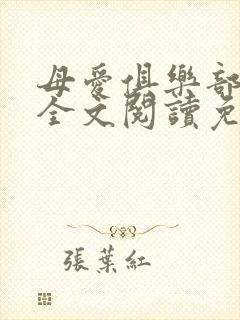 母愛俱樂部
全文閱讀免
張葉紅